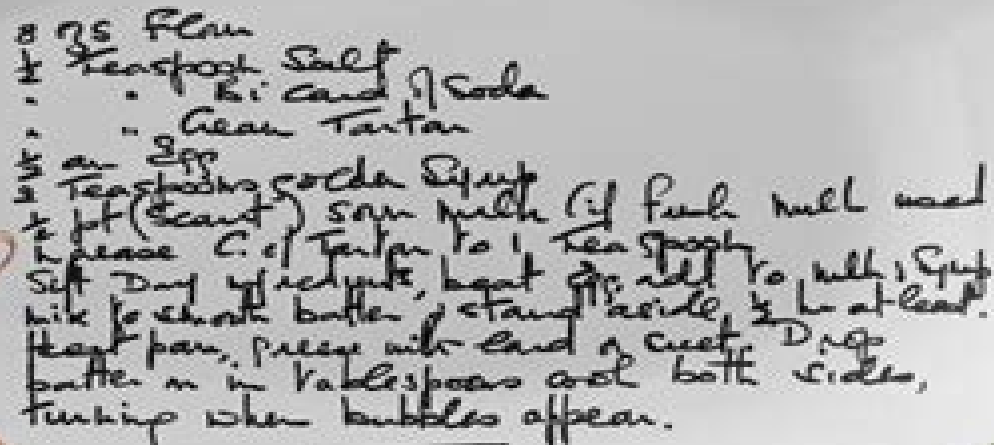 8 ozs Flour
½ Teaspoon Salt
" " Bi Carb of Soda
" " Cream Tartar
½ an Egg
2 Teaspoons Golden Syrup
½ pt (Scant) sour milk (if fresh milk used
increase C. of Tartar to 1 Teaspoon
Sift Dry ingredients, beat egg, add to milk & Syrup
mix to smooth batter & stand aside, ½ hr at least.
Heat pan, grease with lard or suet. Drop
batter in in tablespoons cook both sides,
turning when bubbles appear.